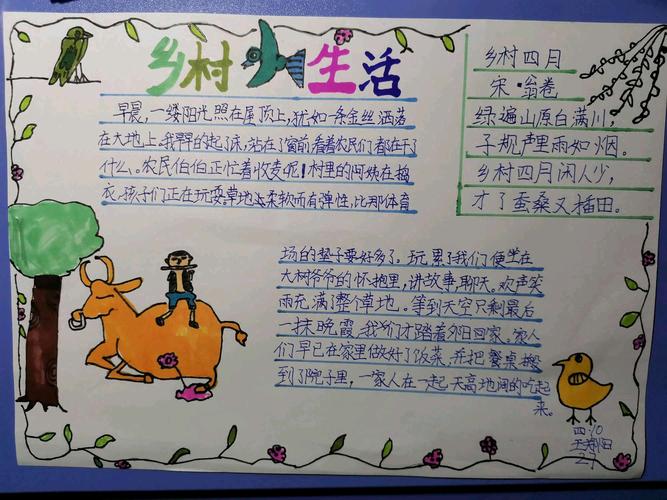 乡村生活
早晨，一缕阳光照在屋顶上，犹如一条金丝洒落
在大地上。我早早的起了床，站在了窗前看着农民们都在干了
什么。农民伯伯正忙着收麦呢！村里的阿姨在搞
衣，孩子们正在玩耍。草地头柔软而有弹性，比那体育
场的垫子要好多了。玩累了我们便坐在
大树爷爷的怀抱里，讲故事，聊天。欢声笑
雨充满了整个草地。等到天空只剩最后
一抹晚霞，我们才踏着夕阳回家。家人
们早已在家里做好了饭菜，并把餐桌搬
到了院子里，一家人在一起天高地阔的吃起
来。
乡村四月
宋·翁卷
绿遍山原白满川，
子规声里雨如烟。
乡村四月闲人少，
才了蚕桑又插田。
四.10